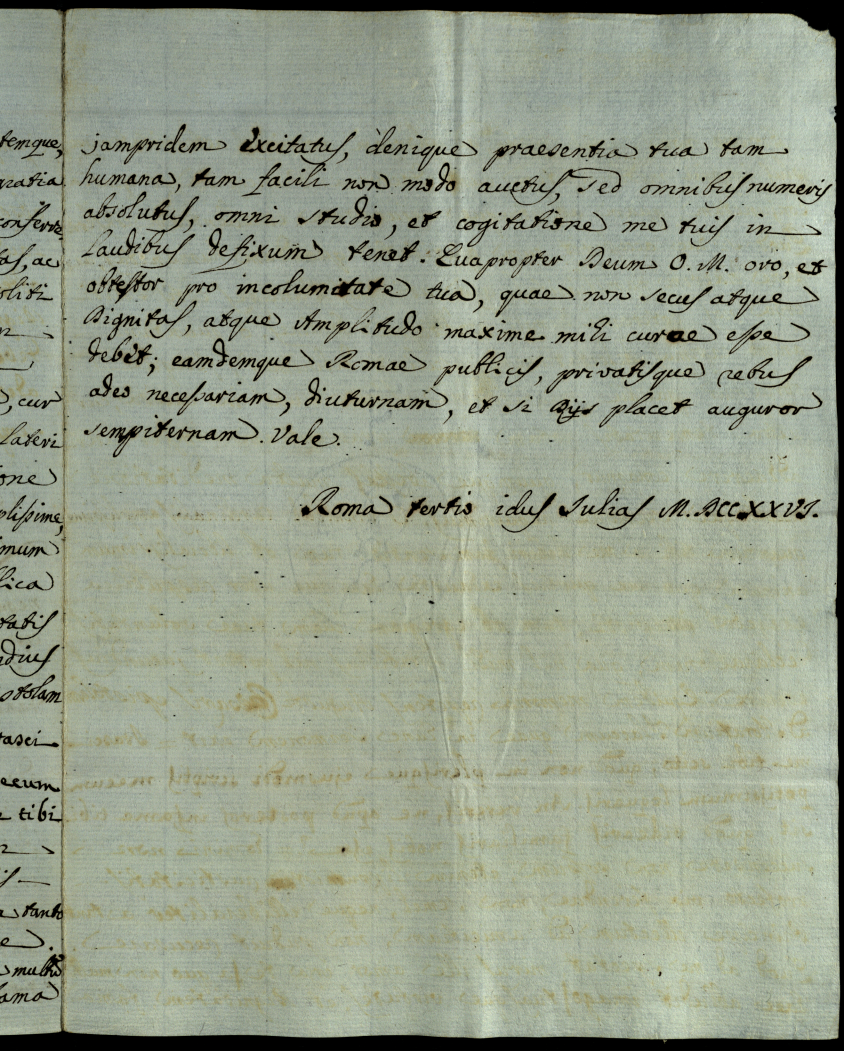 temque,
gratia
conserva
tas, ac
oliti
n
, cur
lateri
one
plissime,
mum
lica
tatis
dius
stolam
rasci
eeum
tibi
is
a tanto
e.
multo
lama
jampridem excitatus, denique praesentia tua tam
humana, tam facili non modo auctus, sed omnibus numeris
absolutus, omni studio, et cogitatione me tuis in
laudibus defixum tenet. Quapropter Deum O. M. oro, et
obtestor pro incolumitate tua, quae non secus atque
Dignitas, atque Amplitudo maxime mihi curae esse
debet; eamdemque Romae publicis, privatisque rebus
adeo necessariam, diuturnam, et si Dijs placet auguror
sempiternam. Vale.
Roma tertio idus Julias M.DCCXXVI.